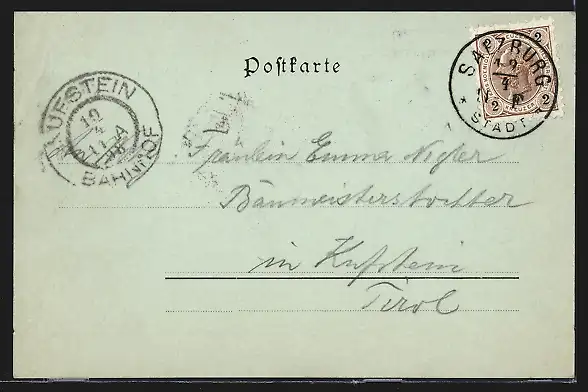 Postkarte
SALZBURG
STADT
2 2
KREUZER
KUFSTEIN
19
4
BAHNHOF
Fräulein Emma Nigler
Baumeisterstochter
in Kufstein
Tirol